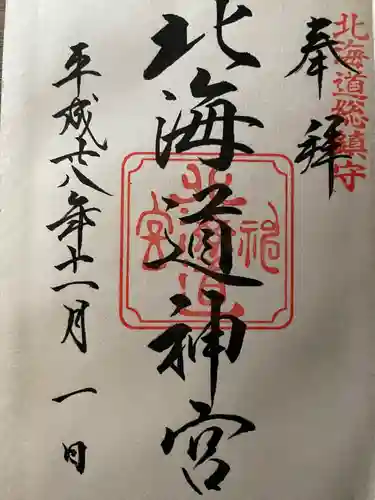 北海道総鎮守
奉拝
北海道神宮
北海道神宮
平成廿八年十一月一日